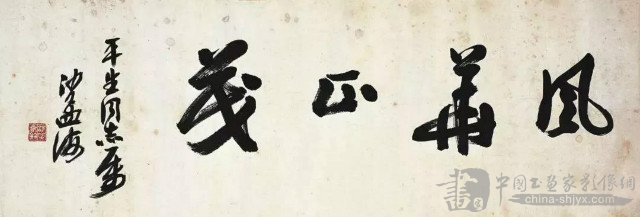 風華正茂
平生同志属
沙孟海
書 中国书画家影像網
china-shjyx.com